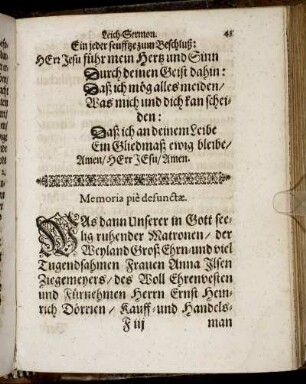 Leich-Sermon. 45
Ein jeder seufftze zum Beschluß:
HErr Jesu führ mein Hertz und Sinn
Durch deinen Geist dahin:
Daß ich mög alles meiden/
Was mich und dich kan schei-
den:
Daß ich an deinem Leibe
Ein Gliedmaß ewig bleibe/
Amen/ HErr JEsu/ Amen.
Memoria piè defunctæ.
WAs dann Unserer in Gott see-
lig ruhender Matronen/ der
Weyland Groß Ehrn-und viel
Tugendsahmen Frauen Anna Ilsen
Ziegemeyers/ des Woll Ehrenvesten
und Fürnehmen Herrn Ernst Hein-
rich Dörrien/ Kauff- und Handels-
F iij man